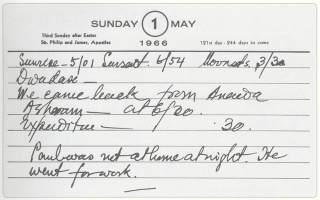 SUNDAY 1 MAY
Third Sunday after Easter
Ss. Philip and James, Apostles
1966
121st day - 244 days to come
Sunrise - 5/01 Sunset. 6/54 Moonsets. 3/30
Dwadasi -
We came back from Ananda
Ashram - at 6/20.
Expenditure - .30.
Paul was not at home at night. He
went for work.